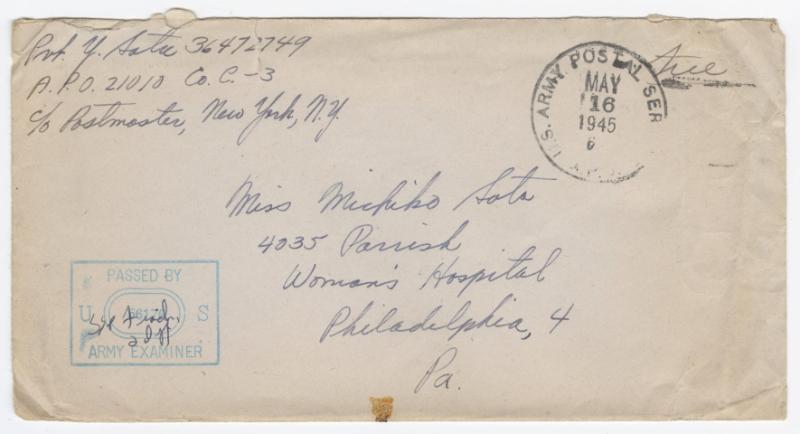 Pvt. Y. Sato 36472749
A.P.O. 21010 Co. C.-3
c/o Postmaster, New York, N.Y.
Free
U.S. ARMY POSTAL SER
MAY
16
1945
Miss Michiko Sato
4035 Parrish
Woman's Hospital
Philadelphia, 4
Pa.
PASSED BY
U S
ARMY EXAMINER